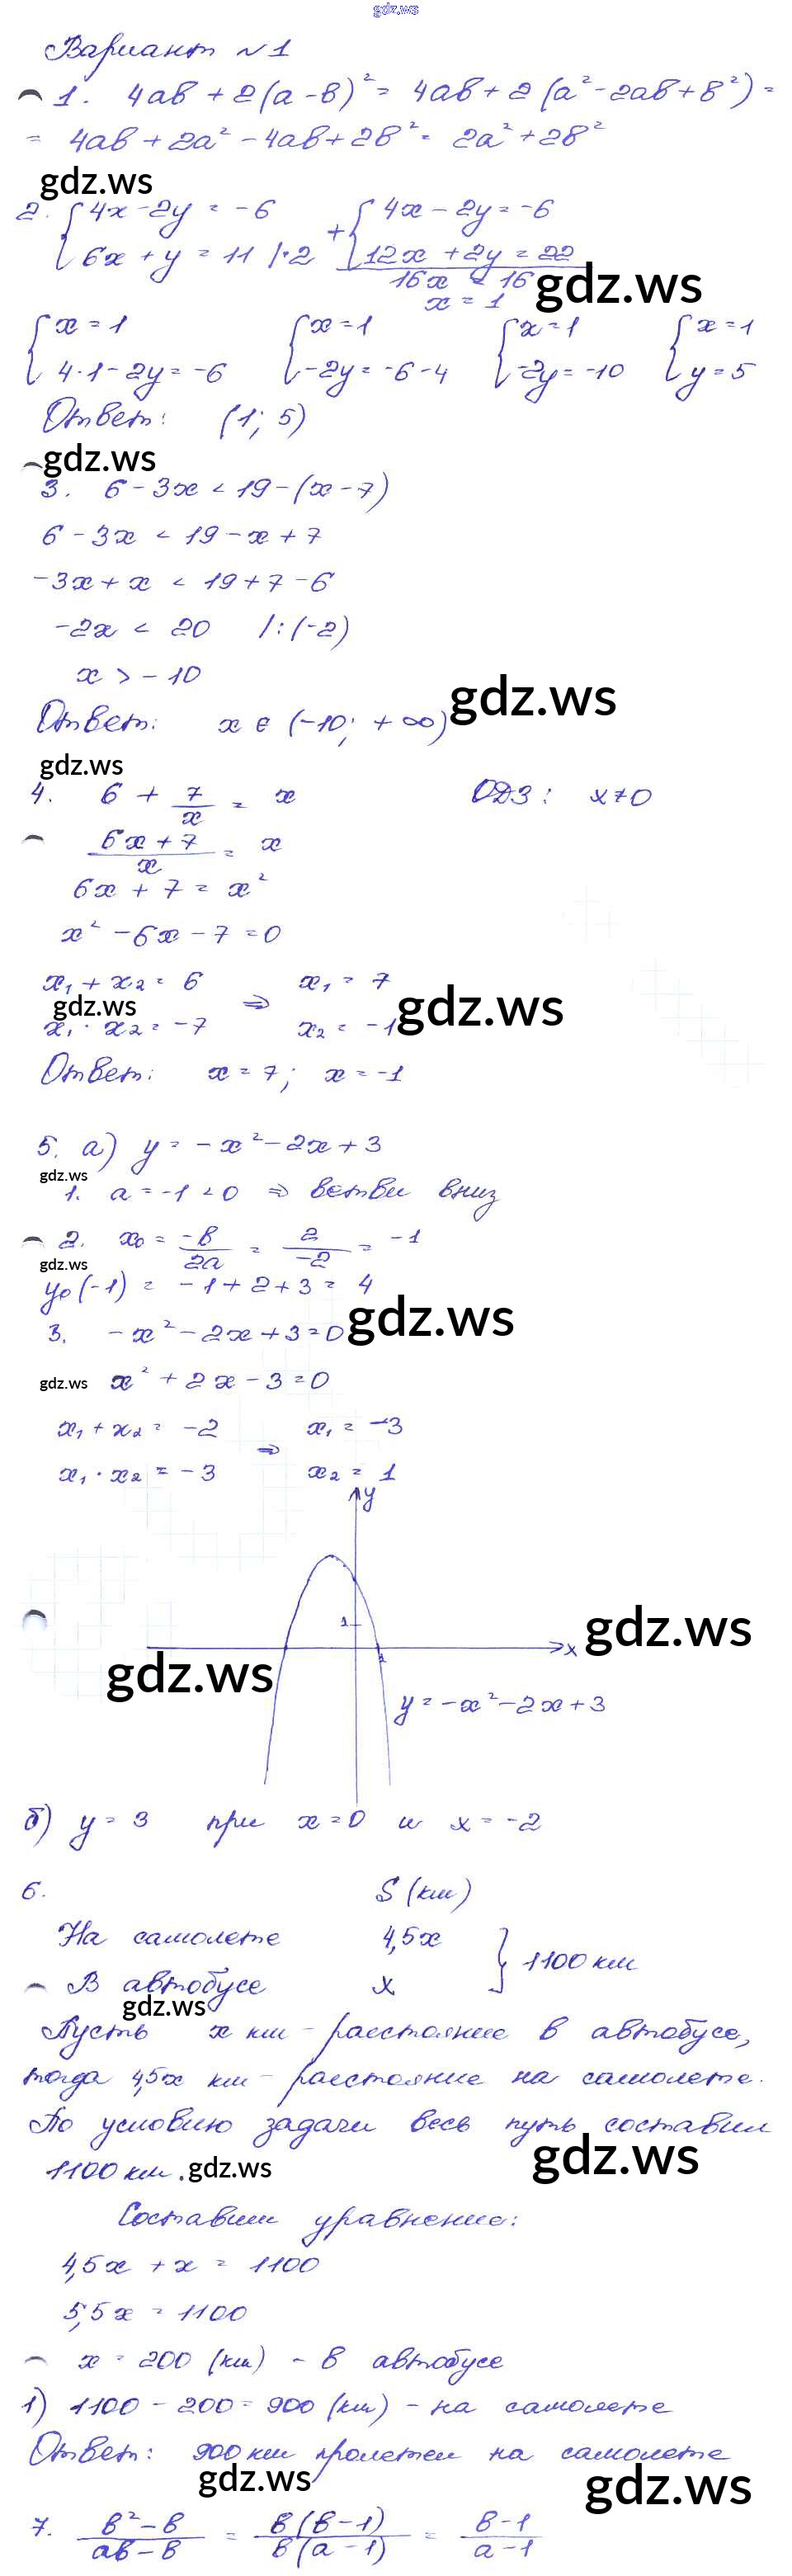 gdz.ws
Вариант №1
1. 4ав + 2(а - в)² = 4ав + 2(а² - 2ав + в²) =
= 4ав + 2а² - 4ав + 2в² = 2а² + 2в²
gdz.ws
2. { 4x - 2y = -6 + { 4x - 2y = -6
{ 6x + y = 11 |·2 { 12x + 2y = 22
gdz.ws
16x = 16
x = 1
{ x = 1 { x = 1 { x = 1 { x = 1
{ 4·1 - 2y = -6 { -2y = -6 - 4 { -2y = -10 { y = 5
Ответ: (1; 5)
gdz.ws
3. 6 - 3x < 19 - (x - 7)
6 - 3x < 19 - x + 7
-3x + x < 19 + 7 - 6
-2x < 20 |:(-2)
x > -10
gdz.ws
Ответ: x ∈ (-10; +∞)
gdz.ws
4. 6 + 7/x = x ОДЗ: x ≠ 0
(6x + 7)/x = x
6x + 7 = x²
x² - 6x - 7 = 0
x₁ + x₂ = 6 ⇒ x₁ = 7
gdz.ws gdz.ws
x₁ · x₂ = -7 x₂ = -1
Ответ: x = 7; x = -1
5. а) y = -x² - 2x + 3
gdz.ws
1. a = -1 < 0 ⇒ ветви вниз
2. x₀ = -в/2а = 2/-2 = -1
gdz.ws
y₀(-1) = -1 + 2 + 3 = 4
3. -x² - 2x + 3 = 0
gdz.ws
gdz.ws x² + 2x - 3 = 0
x₁ + x₂ = -2 ⇒ x₁ = -3
x₁ · x₂ = -3 x₂ = 1
y
1
x
gdz.ws
1
gdz.ws
y = -x² - 2x + 3
б) y = 3 при x = 0 и x = -2
6. S (км)
На самолете 4,5x } 1100 км
В автобусе x
gdz.ws
Пусть x км - расстояние в автобусе,
тогда 4,5x км - расстояние на самолете.
По условию задачи весь путь составил
gdz.ws
1100 км. gdz.ws
Составим уравнение:
4,5x + x = 1100
5,5x = 1100
x = 200 (км) - в автобусе
1) 1100 - 200 = 900 (км) - на самолете
Ответ: 900 км пролетел на самолете
gdz.ws gdz.ws
7. (в² - в)/(ав - в) = в(в - 1)/в(а - 1) = (в - 1)/(а - 1)